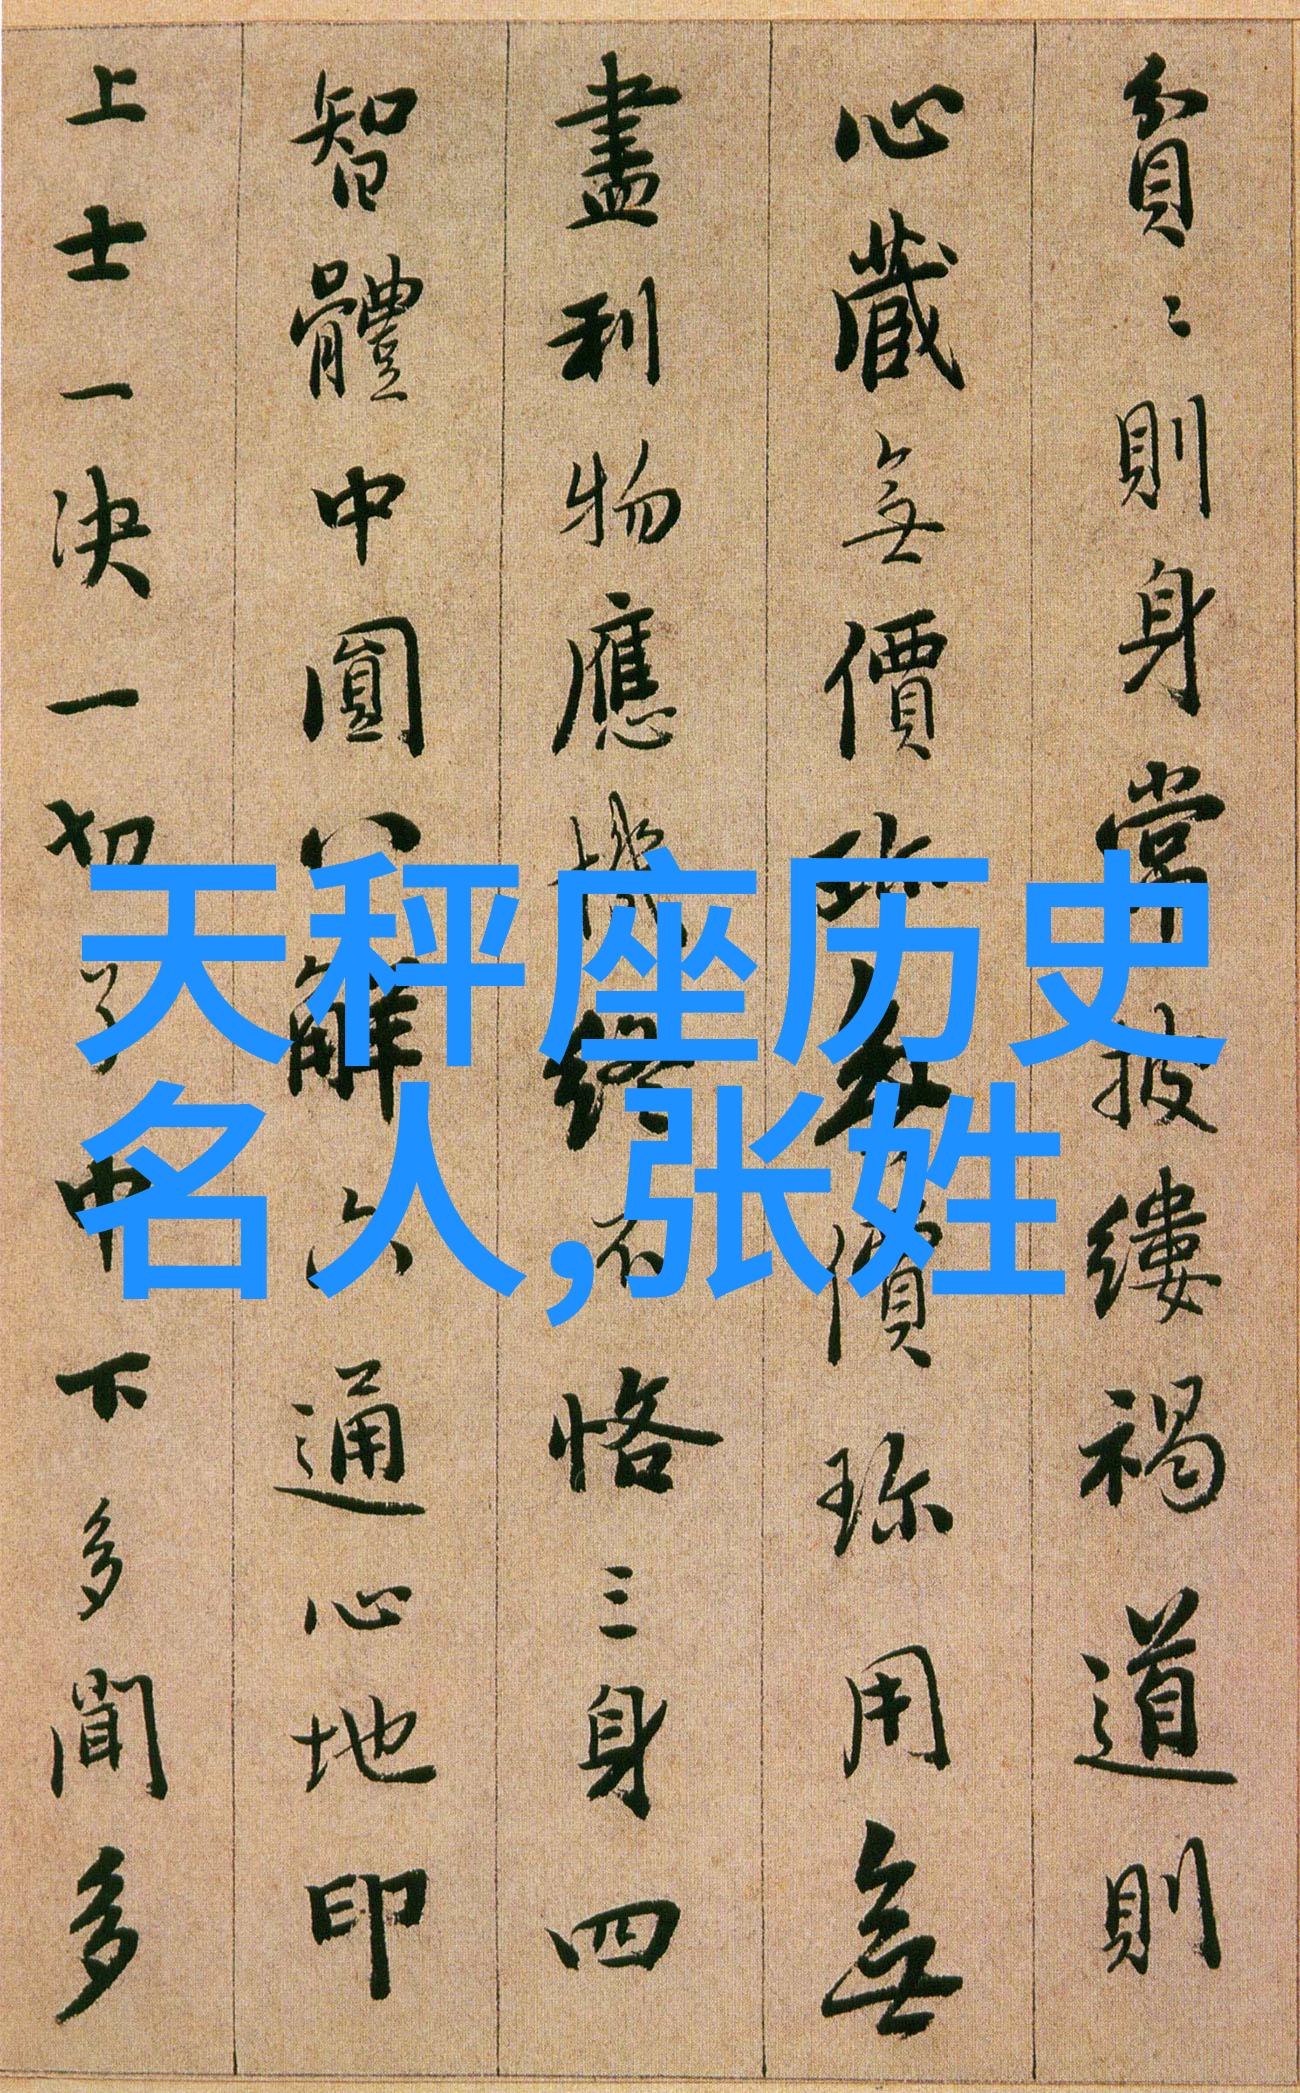 天秤座历史
名人,张姓
貧〻則身常披縷褐道則
心藏無價珎無價珎用無
盡利物應機終不恪三身四
智體中圓八解六通心地印
上士一決一切了中下多聞多